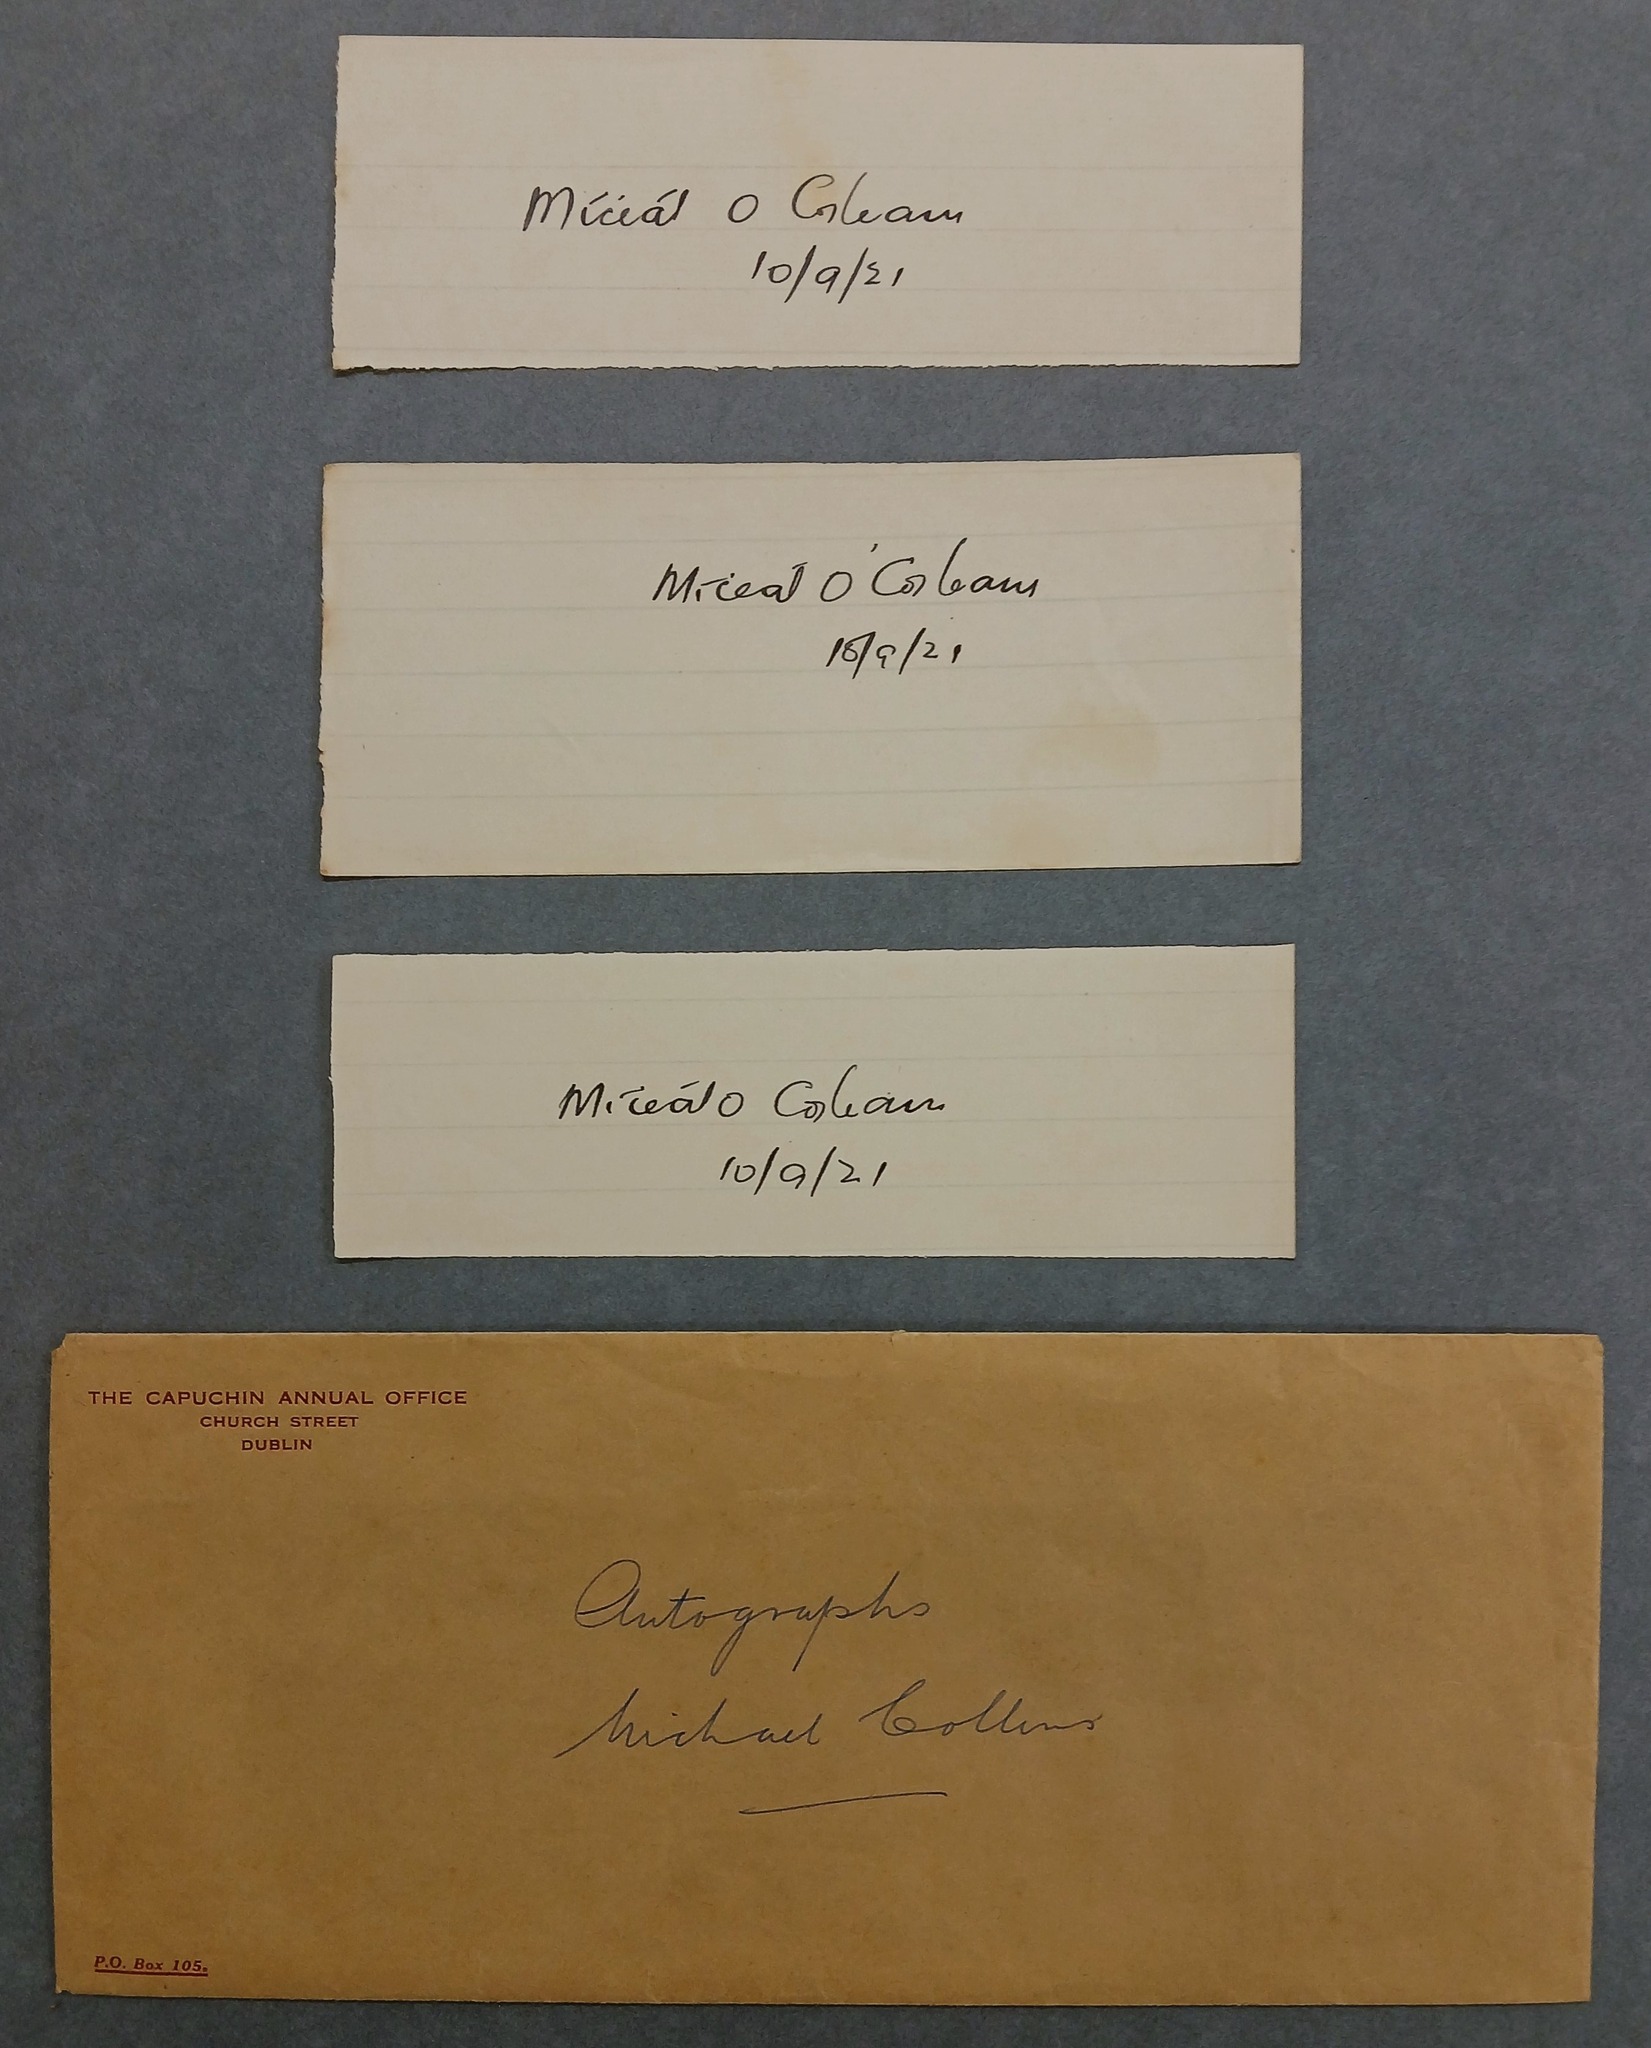 Míċeál O Coileain
10/9/21
Míċeál Ó Coileain
Míċeál O Coileain
10/9/21
THE CAPUCHIN ANNUAL OFFICE
CHURCH STREET
DUBLIN
Autographs
Michael Collins
P.O. Box 105.